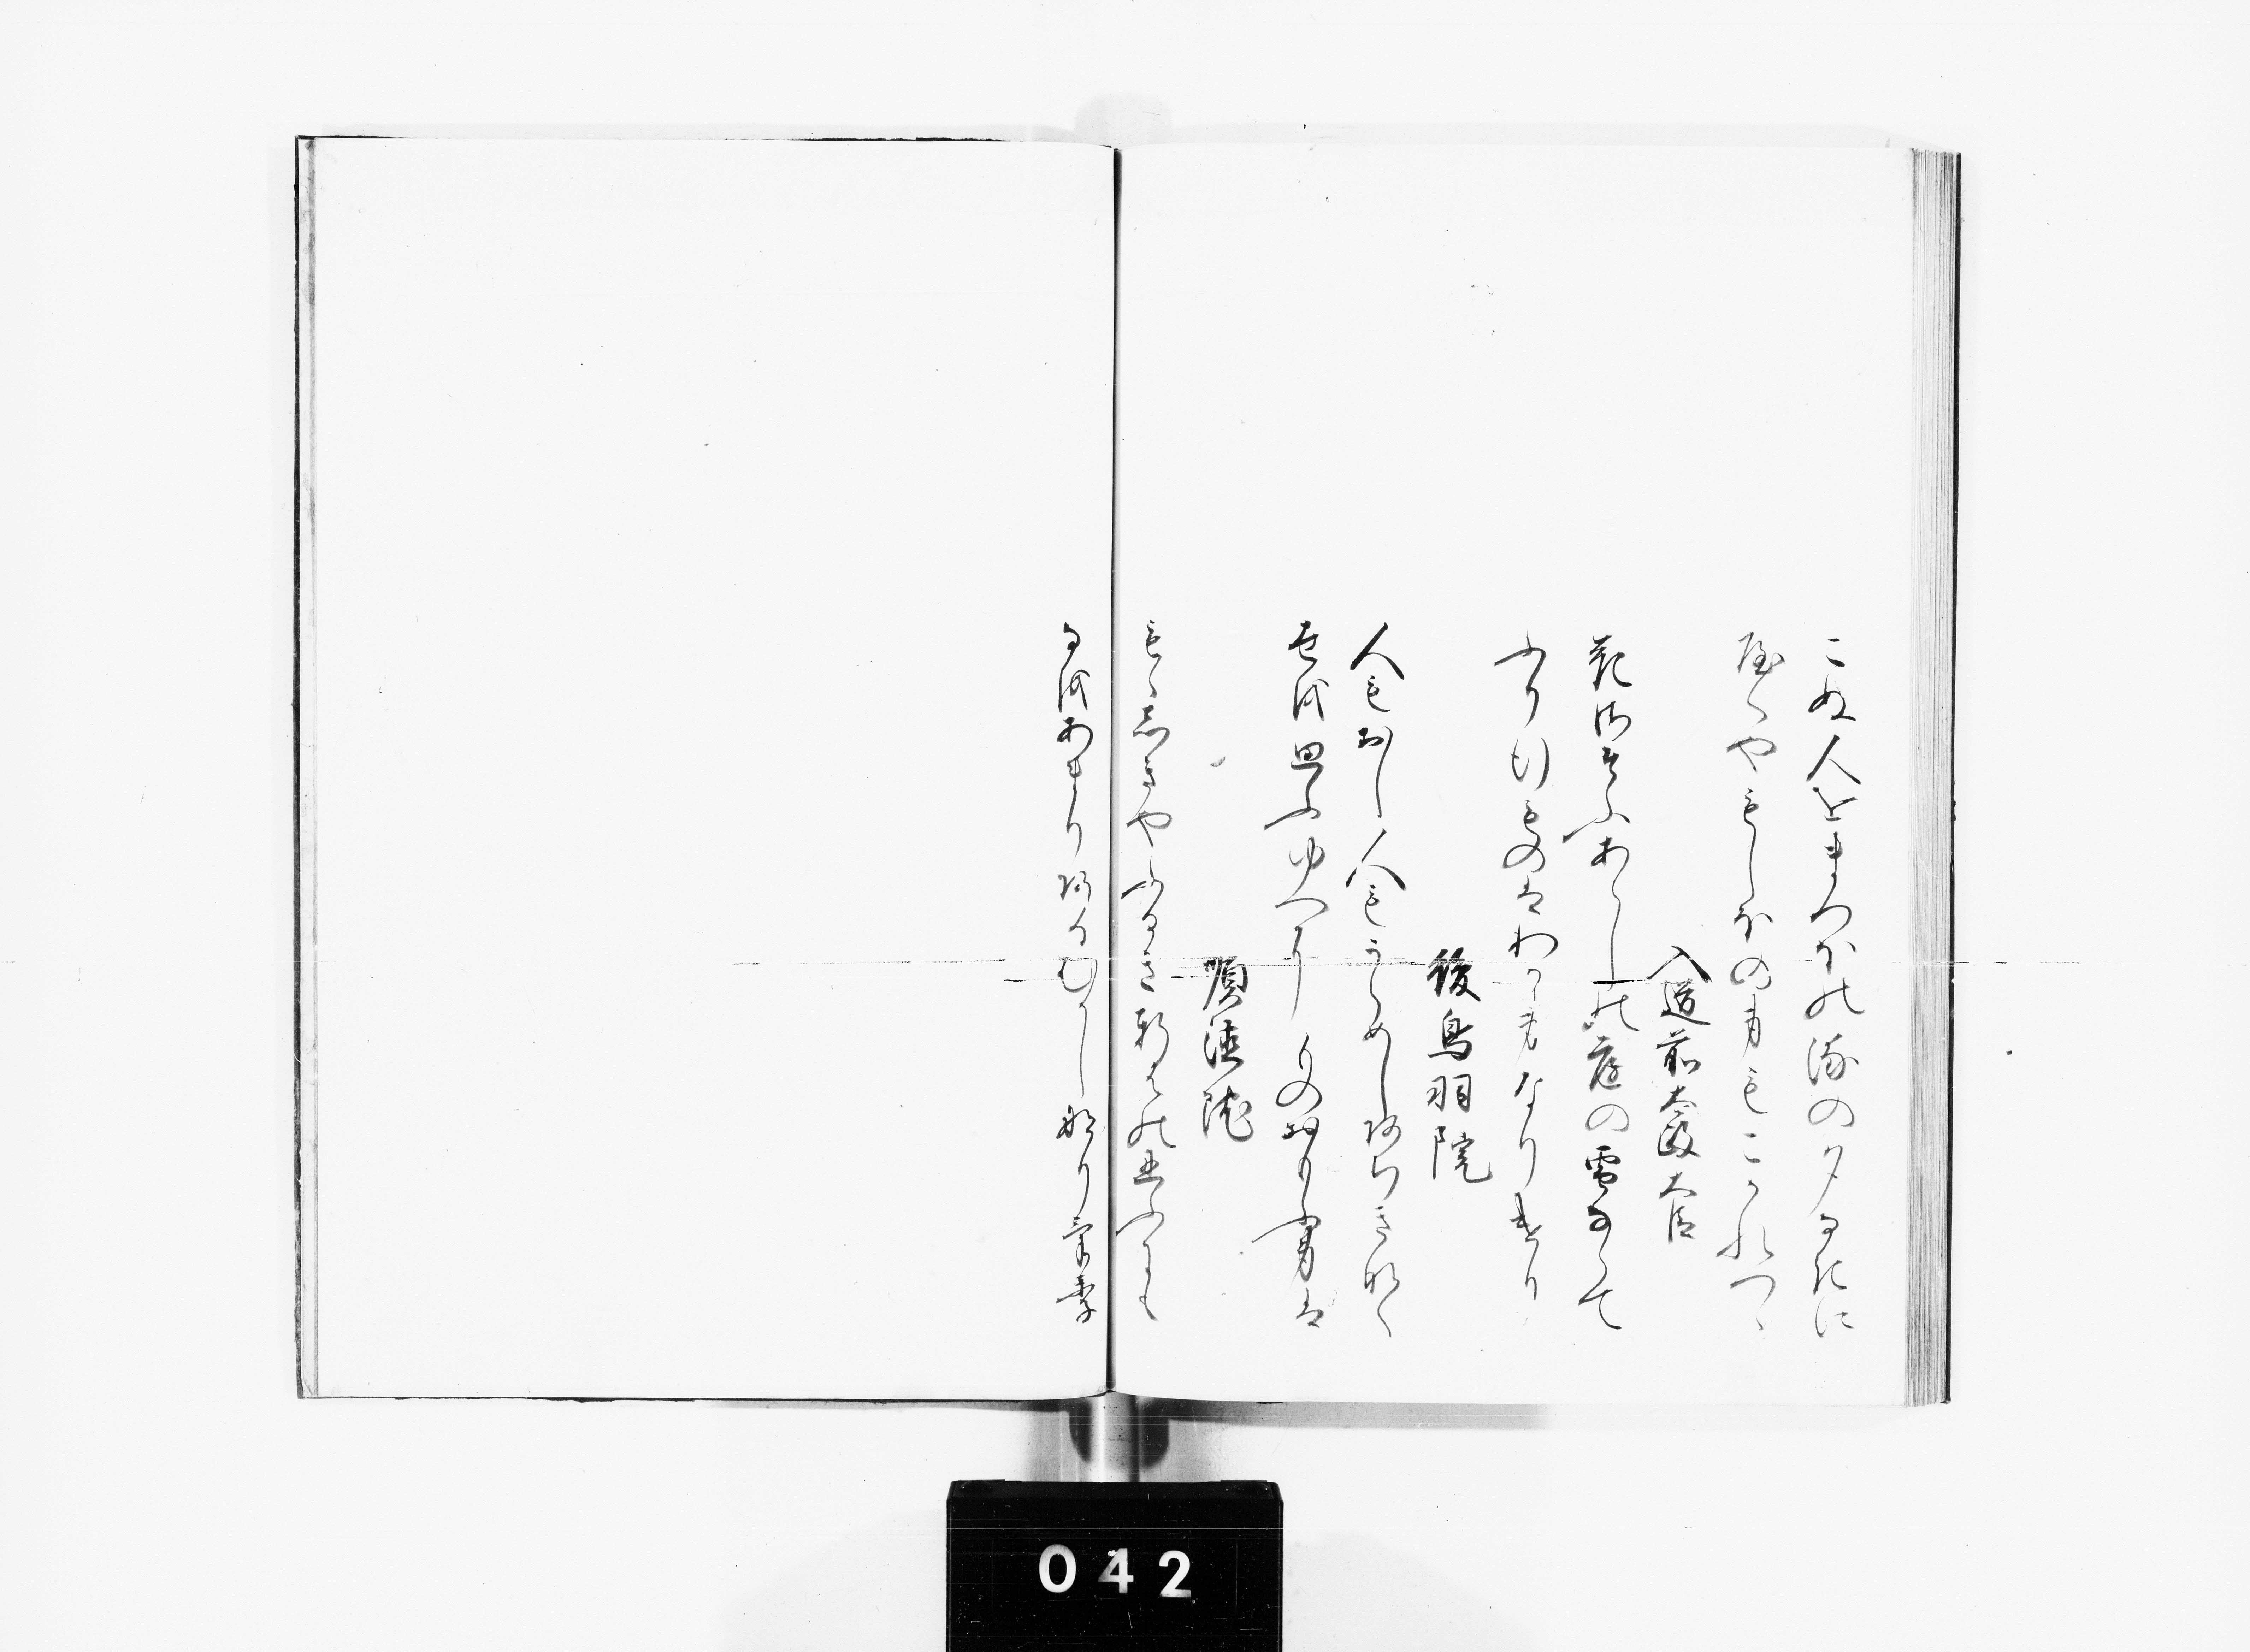 こぬ人をまつほの浦の夕なきに
屋くやもしほの身もこかれつゝ
入道前太政大臣
花さそふあらしの庭の雪ならて
ふり行ものはわか身なりけり
後鳥羽院
人もおし人もうらめしあちきなく
世を思ふゆへにもの思ふ身は
順徳院
もゝしきやふるき軒はの忍ふにも
なをあまりあるむかしなりけり
042